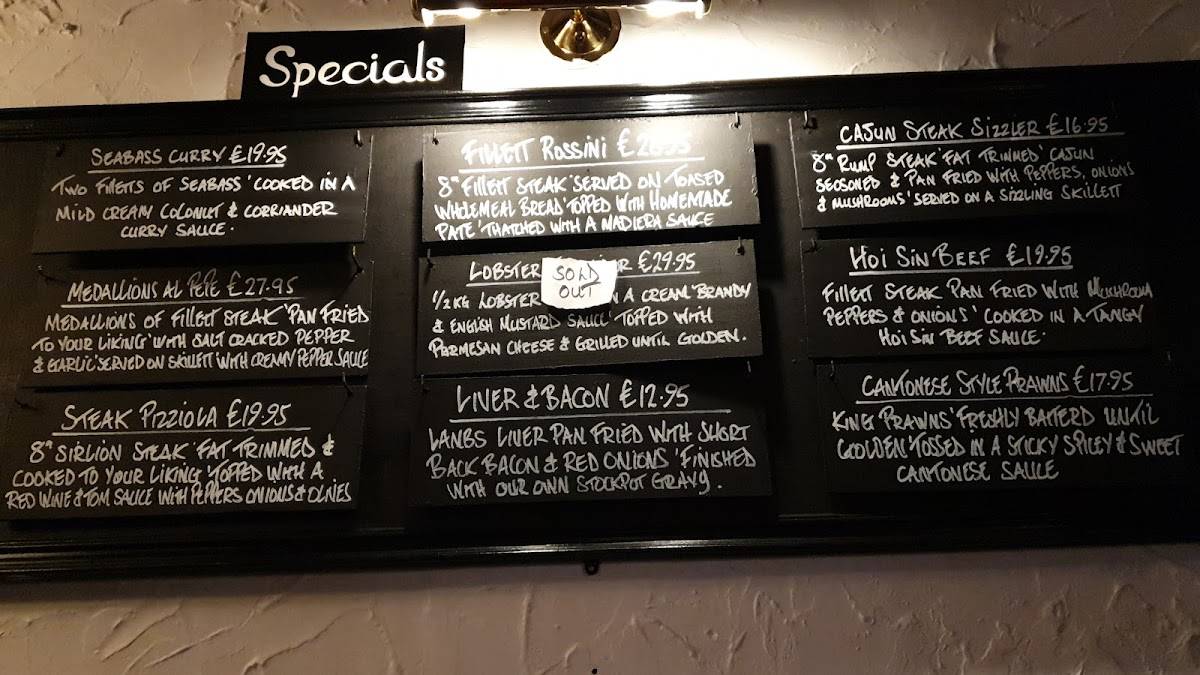 Specials
SEABASS CURRY £19.95
TWO FILLETTS OF SEABASS 'COOKED IN A
MILD CREAMY COCONUT & CORRIANDER
CURRY SAUCE.
MEDALLIONS AL PEPE £27.95
MEDALLIONS OF FILLETT STEAK 'PAN FRIED
TO YOUR LIKING' WITH SALT CRACKED PEPPER
& GARLIC 'SERVED ON SKILLETT WITH CREAMY PEPPER SAUCE
STEAK PIZZIOLA £19.95
8" SIRLION STEAK 'FAT TRIMMED &
COOKED TO YOUR LIKING 'TOPPED WITH A
RED WINE & TOM SAUCE WITH PEPPERS ONIONS & OLIVES
FILLETT ROSSINI
8" FILLETT STEAK 'SERVED ON TOASED
WHOLEMEAL BREAD 'TOPPED WITH HOMEMADE
PATE 'THATCHED WITH A MADIERA SAUCE
LOBSTER £29.95
SOLD
OUT
1/2 KG LOBSTER IN A CREAM 'BRANDY
& ENGLISH MUSTARD SAUCE 'TOPPED WITH
PARMESAN CHEESE & GRILLED UNTIL GOLDEN.
LIVER & BACON £12.95
LANBS LIVER PAN FRIED WITH SHORT
BACK BACON & RED ONIONS 'FINISHED
WITH OUR OWN STOCKPOT GRAVY.
CAJUN STEAK SIZZLER £16.95
8" RUMP STEAK 'FAT TRIMMED' CAJUN
SEOSONED & PAN FRIED WITH PEPPERS, ONIONS
& MUSHROOMS' SERVED ON A SIZLING SKILLETT
HOI SIN BEEF £19.95
FILLETT STEAK PAN FRIED WITH MUSHROOM
PEPPERS & ONIONS' COOKED IN A TANGY
HOI SIN BEEF SAUCE.
CANTONESE STYLE PRAWNS £17.95
KING PRAWNS' FRESHLY BATTERD UNTIL
GOLDEN' TOSSED IN A STICKY SPICEY & SWEET
CANTONESE SAUCE